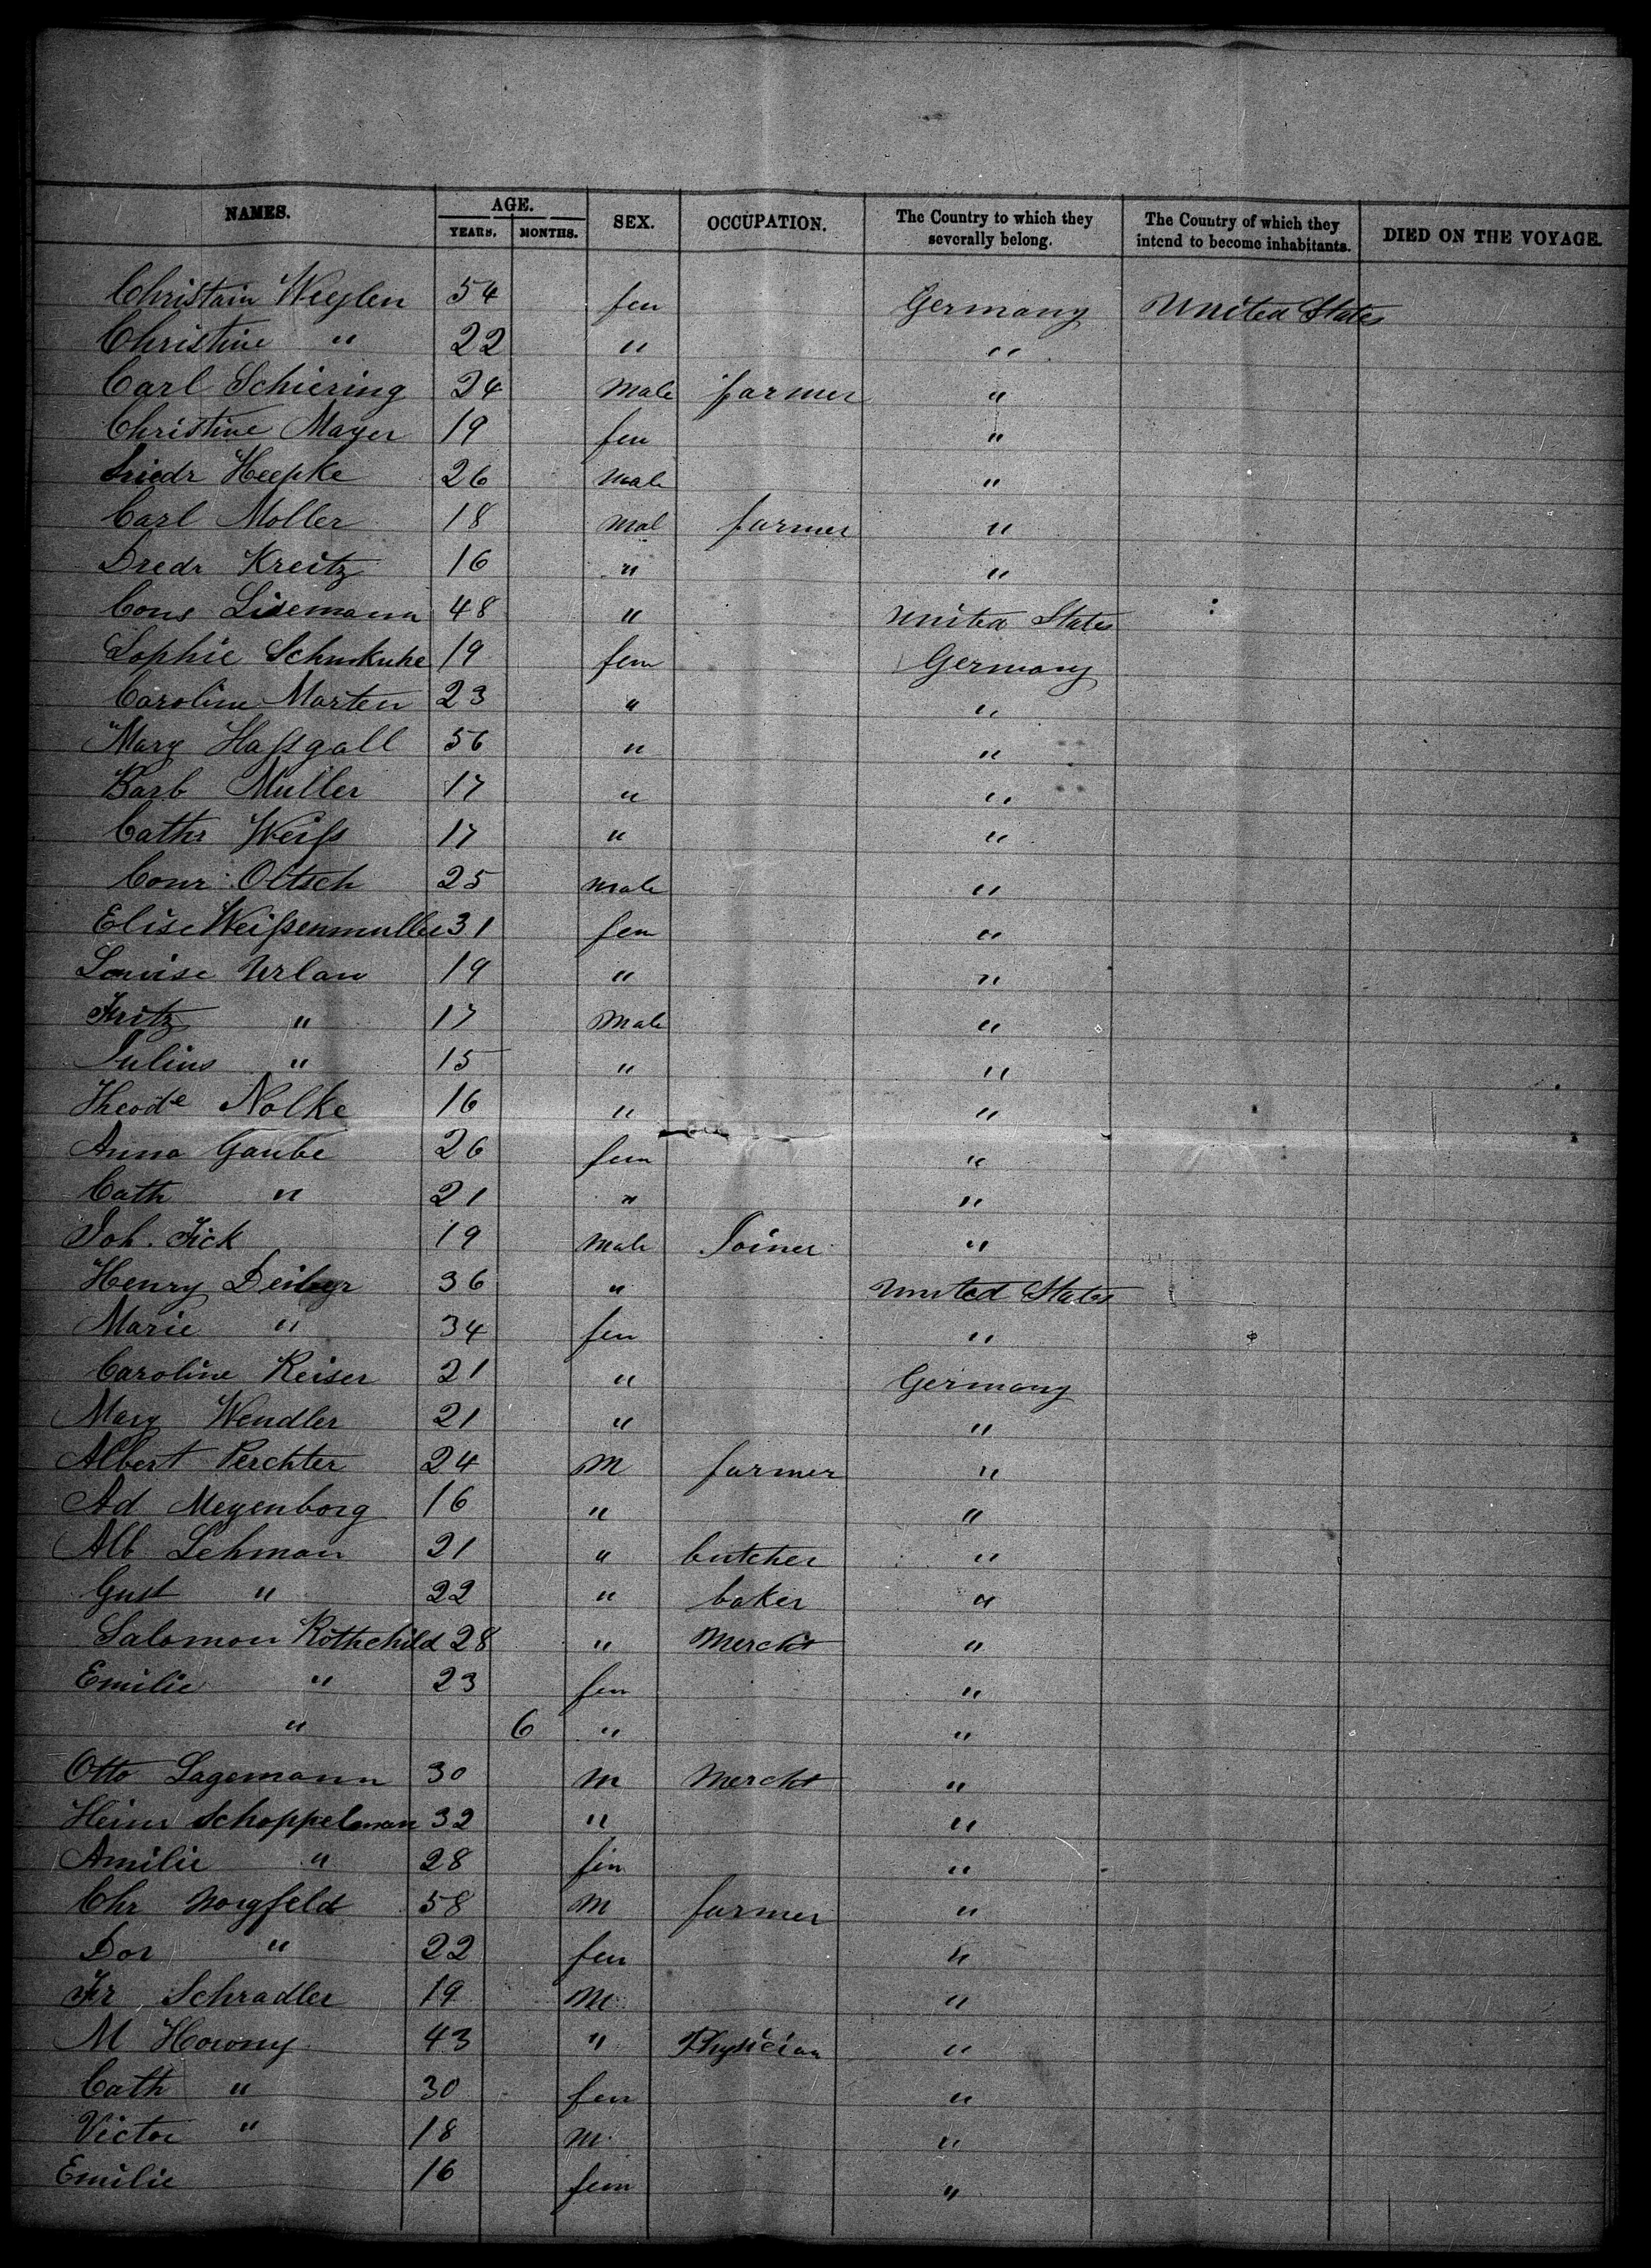 NAMES. AGE. SEX. OCCUPATION. The Country to which they severally belong. The Country of which they intend to become inhabitants. DIED ON THE VOYAGE.
YEARS. MONTHS.
Christain Weeglen 54 fem Germany United States
Christine " 22 " "
Carl Schiering 24 Male farmer "
Christine Mayer 19 fem "
Friedr Heepke 26 Male "
Carl Moller 18 Mal farmer "
Dredr Kreitz 16 " "
Cons Lisemann 48 " United States
Sophie Schmkuhe 19 fem Germany
Caroline Marten 23 " "
Mary Haßgall 56 " "
Barb Muller 17 " "
Cathr Weiß 17 " "
Conr Oltsch 25 male "
Elise Weißenmuller 31 fem "
Louise Urlau 19 " "
Fritz " 17 Male "
Julius " 15 " "
Theode Nolke 16 " "
Anna Gaube 26 fem "
Cath " 21 " "
Joh. Fick 19 Male Joiner "
Henry 36 " United States
Marie " 34 fem "
Caroline Reiser 21 " Germany
Mary Wendler 21 " "
Albert Perchter 24 M farmer "
Ad Meyenborg 16 " "
Alb Lehman 21 " butcher "
Gust " 22 " baker "
Salomon Rothchild 28 " Mercht "
Emilie " 23 fem "
" 6 " "
Otto Lagemann 30 M Mercht "
Heinr Schoppelman 32 " "
Amilie " 28 fem "
Chr Norgfeld 58 M farmer "
Dor " 22 fem "
Fr Schradler 19 M "
M Howny 43 " Physician "
Cath " 30 fem "
Victor " 18 M "
Emilie 16 fem "